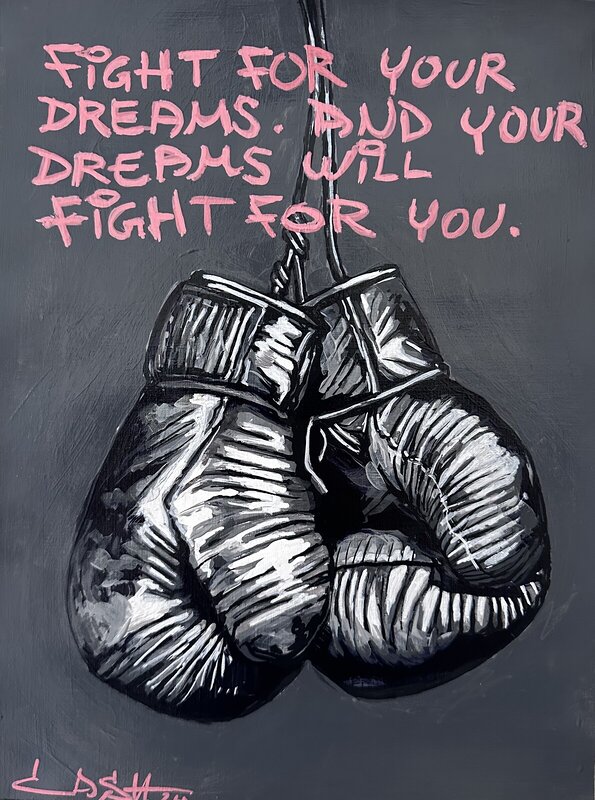 FiGHT FOR YOUR
DREAMS. AND YOUR
DREAMS WiLL
FiGHT FOR YOU.